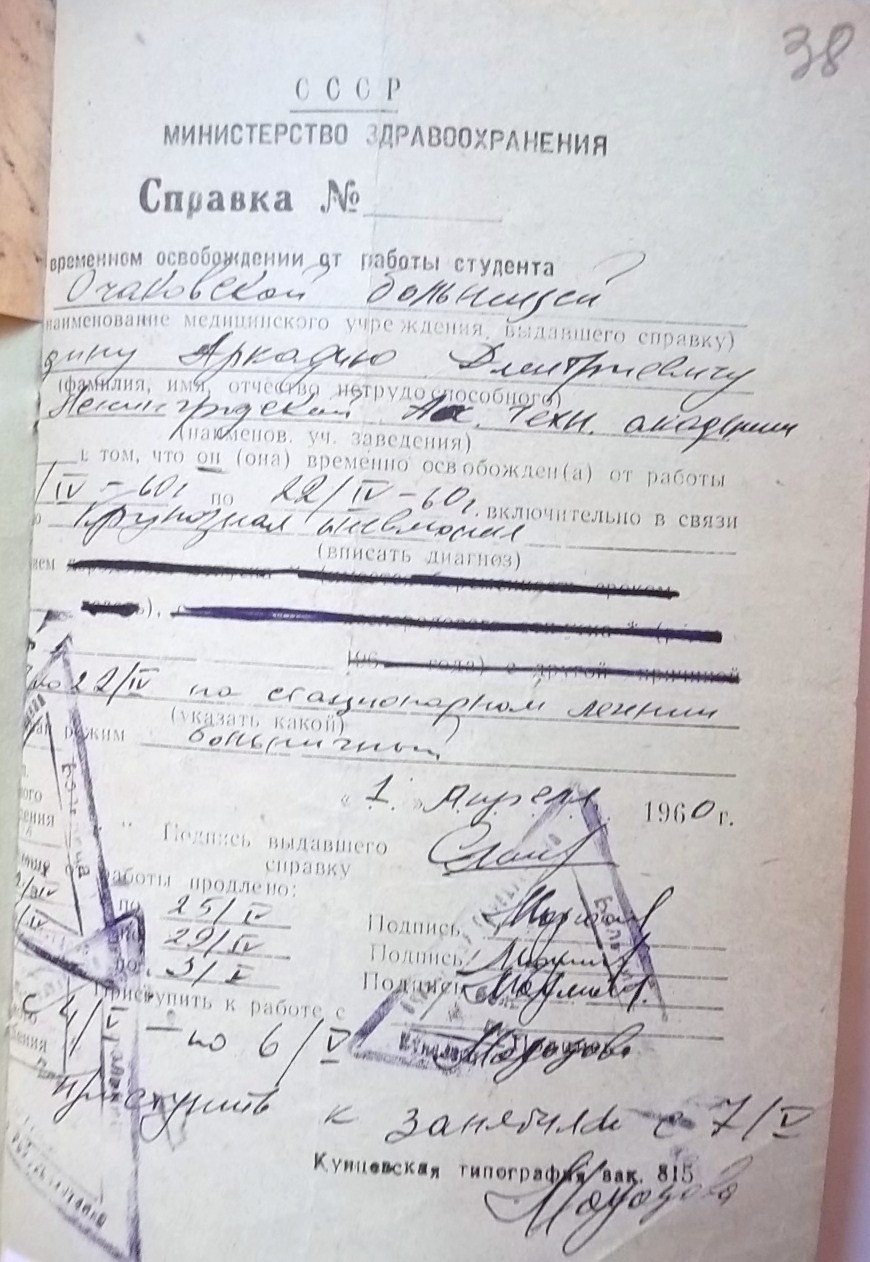 38
СССР
МИНИСТЕРСТВО ЗДРАВООХРАНЕНИЯ
Справка №
временном освобождении от работы студента
Очаковской больницей
наименование медицинского учреждения, выдавшего справку)
зину Аркадию Дмитриевичу
(фамилия, имя, отчество нетрудоспособного)
Ленинградской техн. академии
(наименов. уч. заведения)
в том, что он (она) временно освобожден(а) от работы
/IV-60г. по 22/IV-60г. включительно в связи
Крупозная пневмония
(вписать диагноз)
по 22/IV на стационарном лечении
(указать какой)
режим больничный
„1" Апреля 1960 г.
Подпись выдавшего
справку
работы продлено:
по 25/IV Подпись
по 29/IV Подпись
до 3/V Подпись
Приступить к работе с
с 4/V - по 6/V Морозова
Приступить к занятиям с 7/V
Кунцевская типография зак. 815
Морозова
Больница